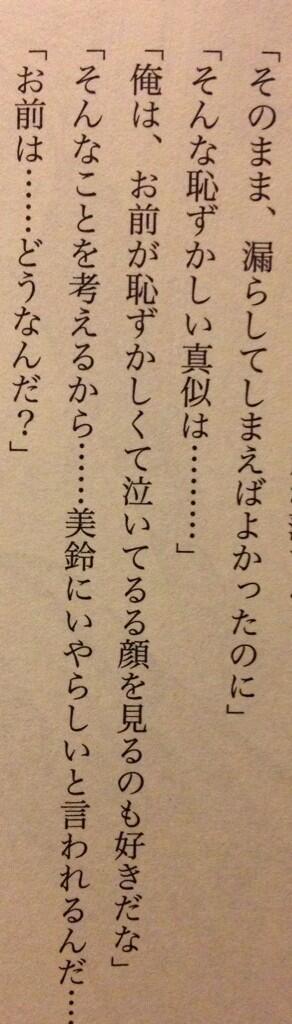 「そのまま、漏らしてしまえばよかったのに」
「そんな恥ずかしい真似は………」
「俺は、お前が恥ずかしくて泣いてるる顔を見るのも好きだな」
「そんなことを考えるから……美鈴にいやらしいと言われるんだ……
「お前は……どうなんだ？」